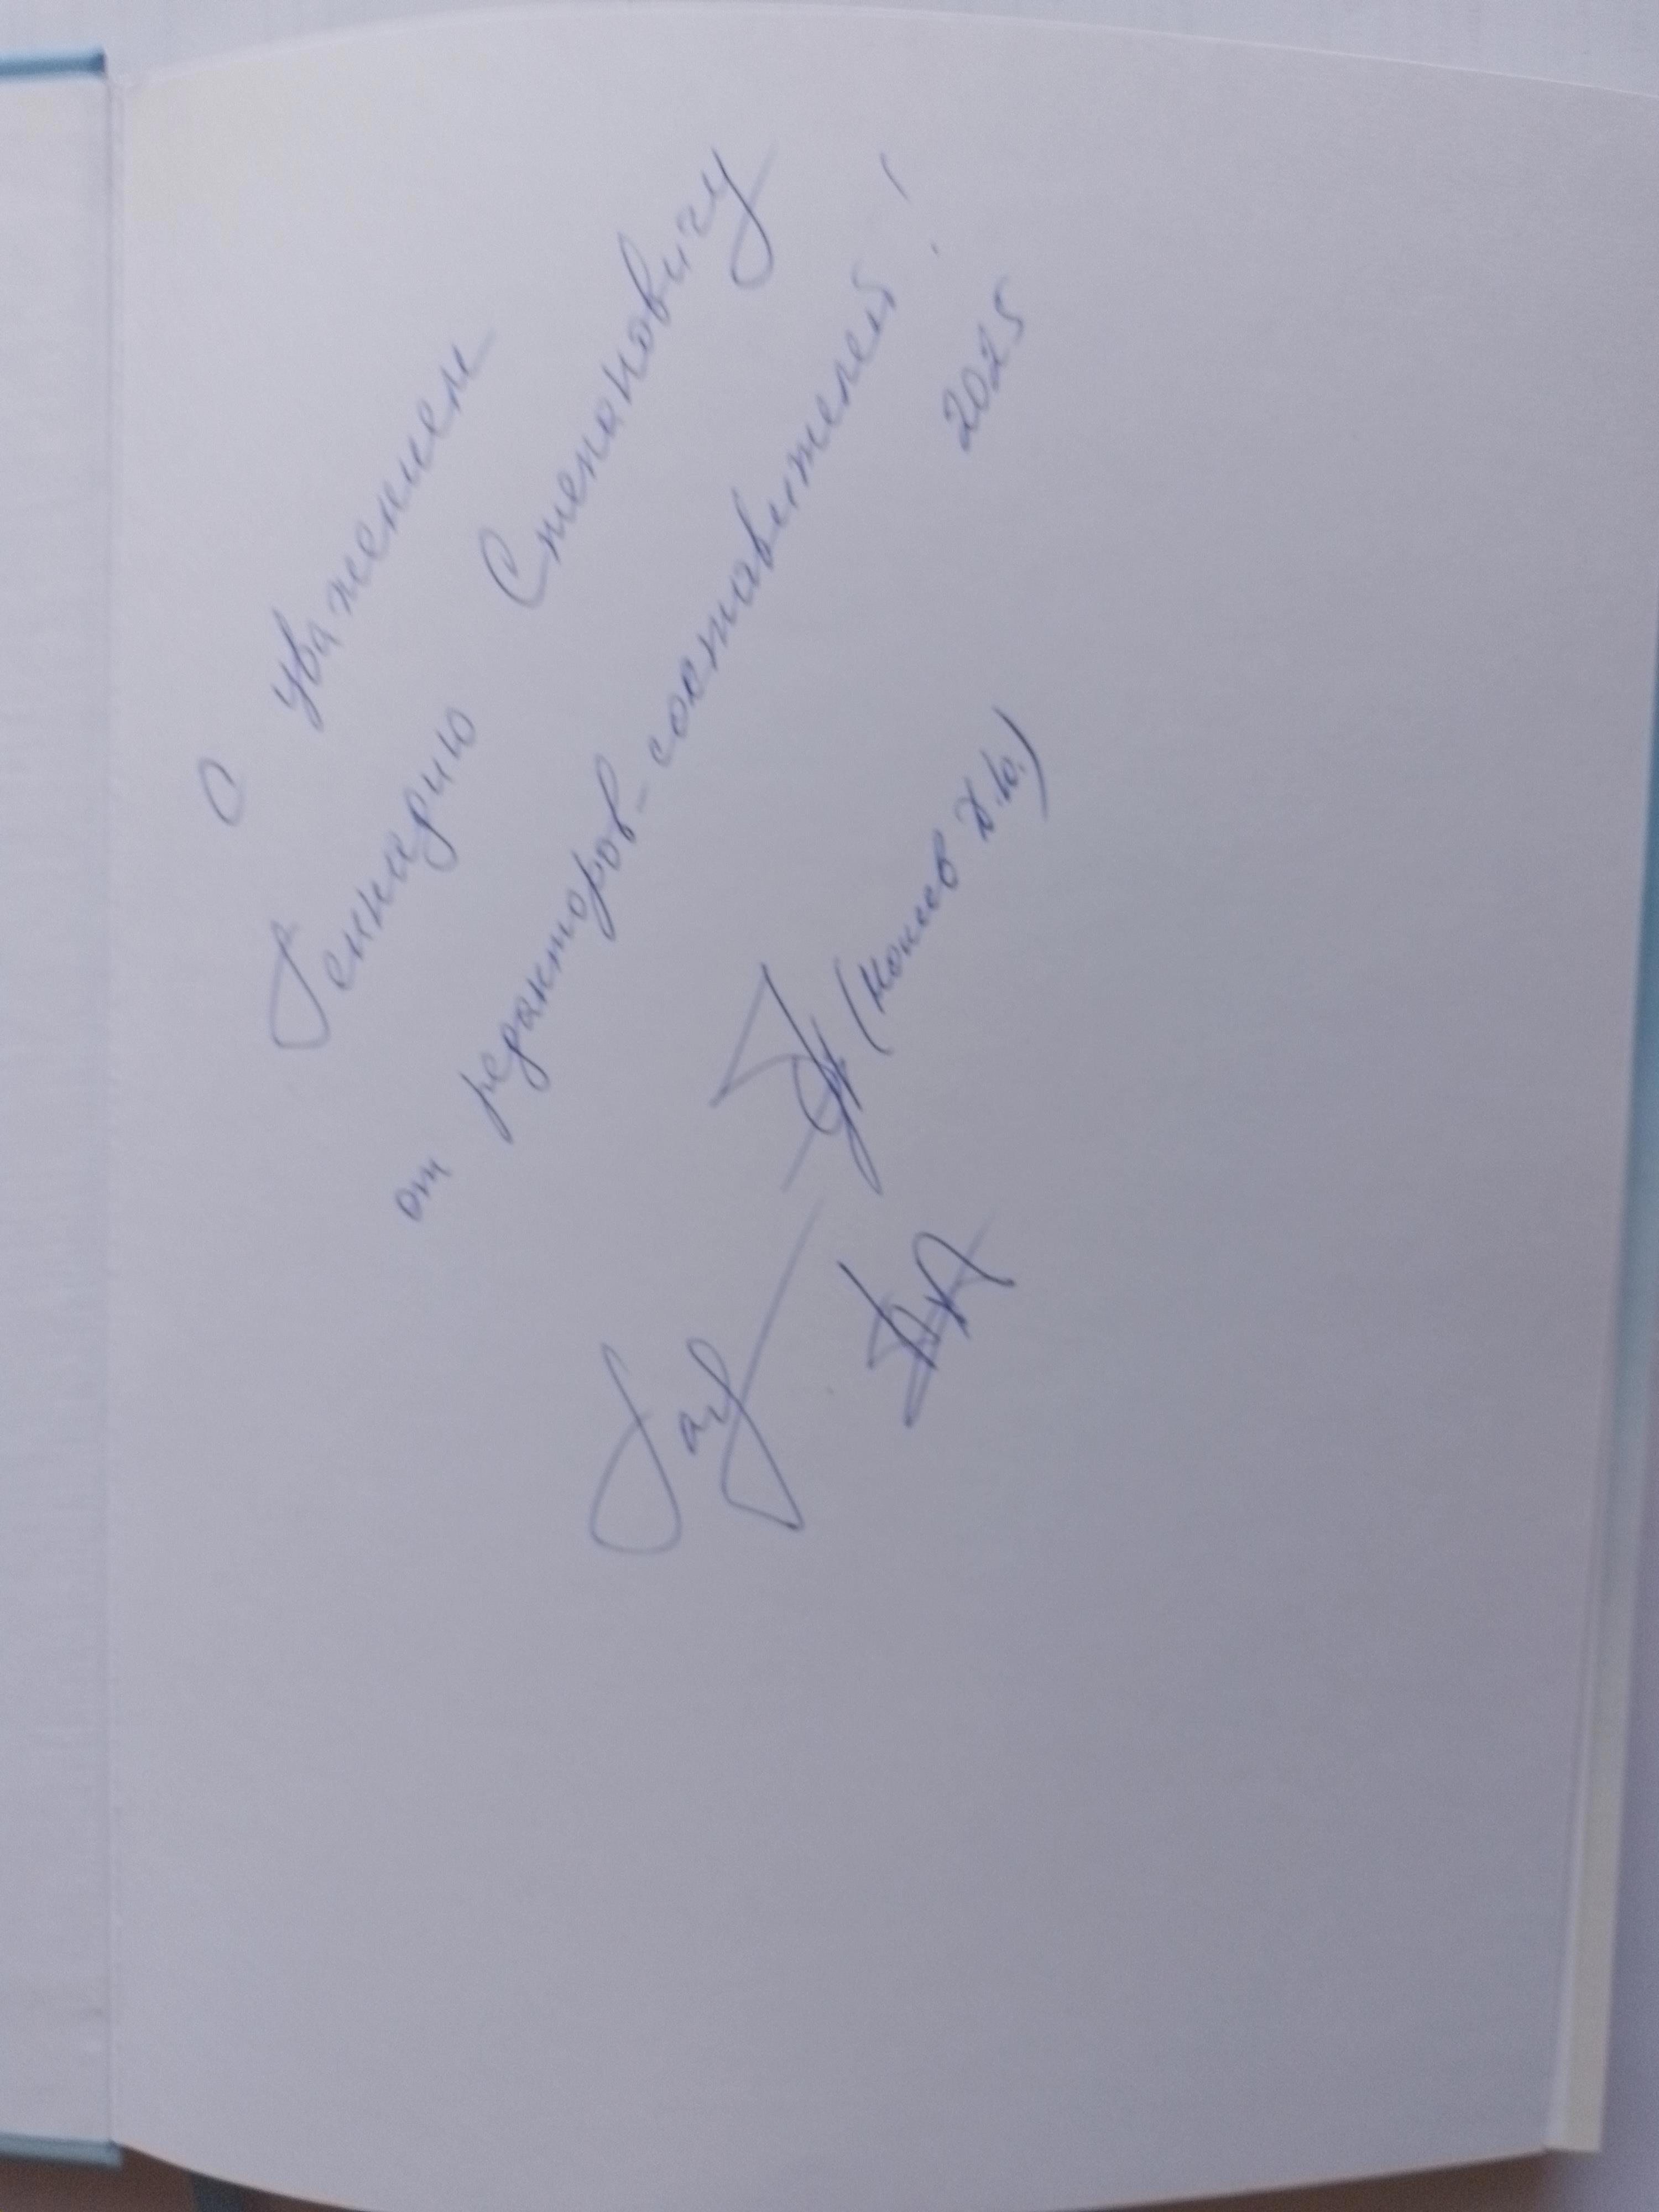 С уважением
Геннадию Степановичу
от редакторов-составителей!
2025
(Мокеев Д.Ю.)